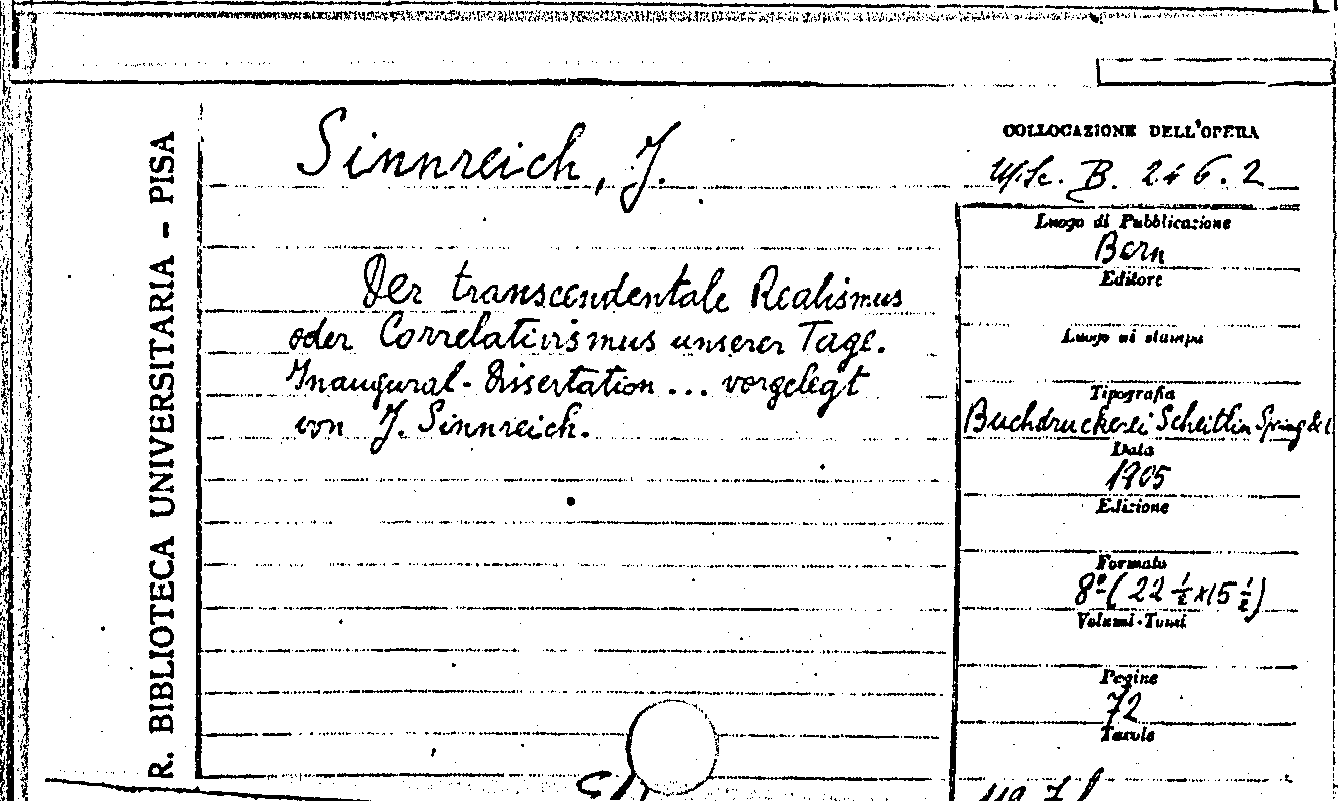 R. BIBLIOTECA UNIVERSITARIA – PISA
Sinnreich, J.
Der transcendentale Realismus
oder Correlativismus unserer Tage.
Inaugural-Dissertation ... vorgelegt
von J. Sinnreich.
COLLOCAZIONE DELL'OPERA
B. 246.2
Luogo di Pubblicazione
Bern
Editore
Luogo di stampa
Tipografia
Buchdruckerei Scheitlin Spring &
Data
1905
Edizione
Formato
8º (22 ½ x 15 ½)
Volumi-Tomi
Pagine
72
Tavole